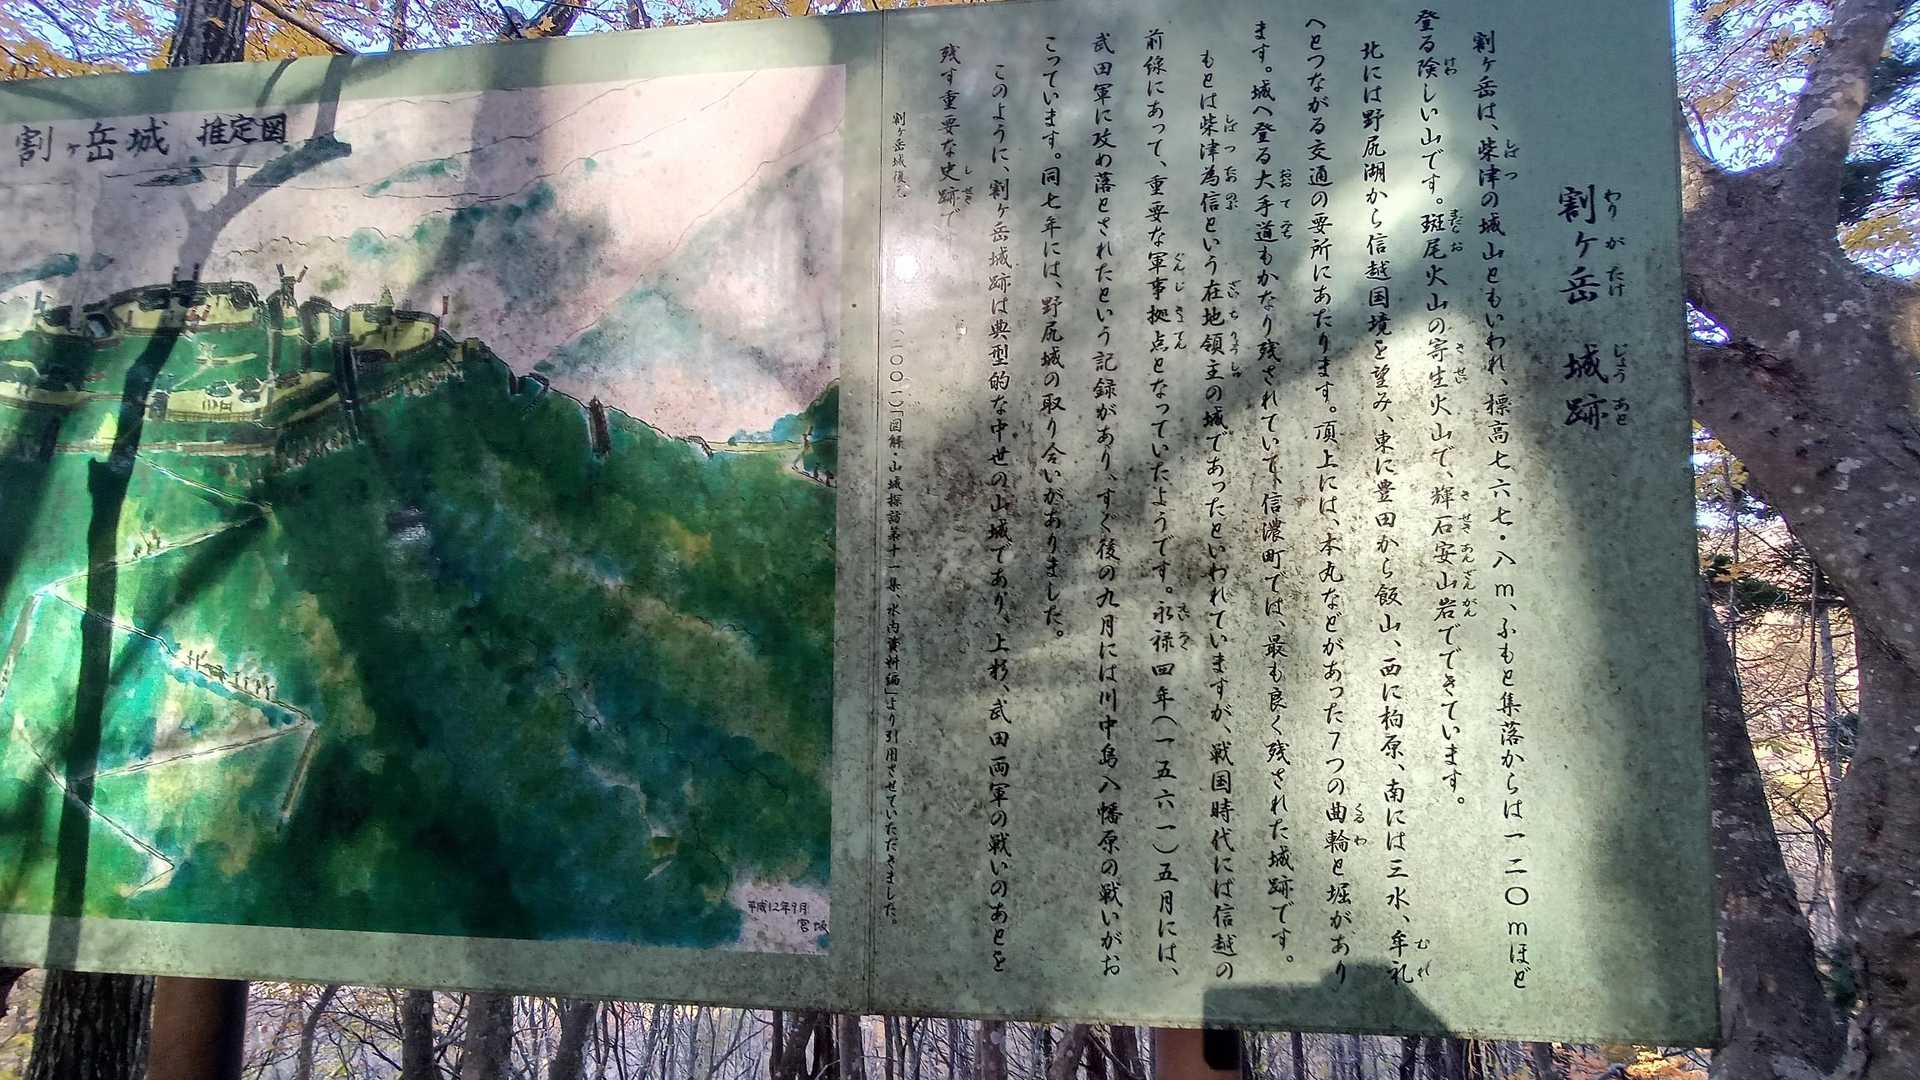 割ヶ岳城 推定図
平成12年9月
宮坂
割ヶ岳城跡
わりがたけじょうあと
割ヶ岳は、柴津の城山ともいわれ、標高七六七・八m、ふもと集落からは一二〇mほど
登る険しい山です。斑尾火山の寄生火山で、輝石安山岩でできています。
北には野尻湖から信越国境を望み、東に豊田から飯山、西に柏原、南には三水、牟礼
へとつながる交通の要所にあたります。頂上には、本丸などがあった7つの曲輪と堀があり
ます。城へ登る大手道もかなり残されていて、信濃町では、最も良く残された城跡です。
もとは柴津為信という在地領主の城であったといわれていますが、戦国時代には信越の
前線にあって、重要な軍事拠点となっていたようです。永禄四年(一五六一)五月には、
武田軍に攻め落とされたという記録があり、すぐ後の九月には川中島八幡原の戦いがお
こっています。同七年には、野尻城の取り合いがありました。
このように、割ヶ岳城跡は典型的な中世の山城であり、上杉、武田両軍の戦いのあとを
残す重要な史跡です。
割ヶ岳城復元 (二〇〇一)「図解・山城探訪第十一集、水内資料編」より引用させていただきました。